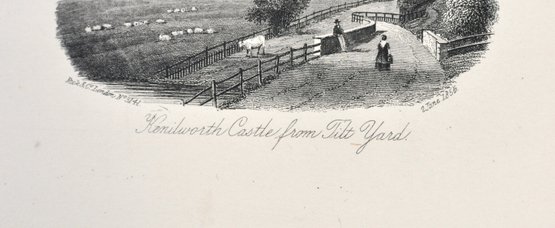 Rock & Co. London, No. 1641.
2 June 1856
Kenilworth Castle from Tilt Yard.